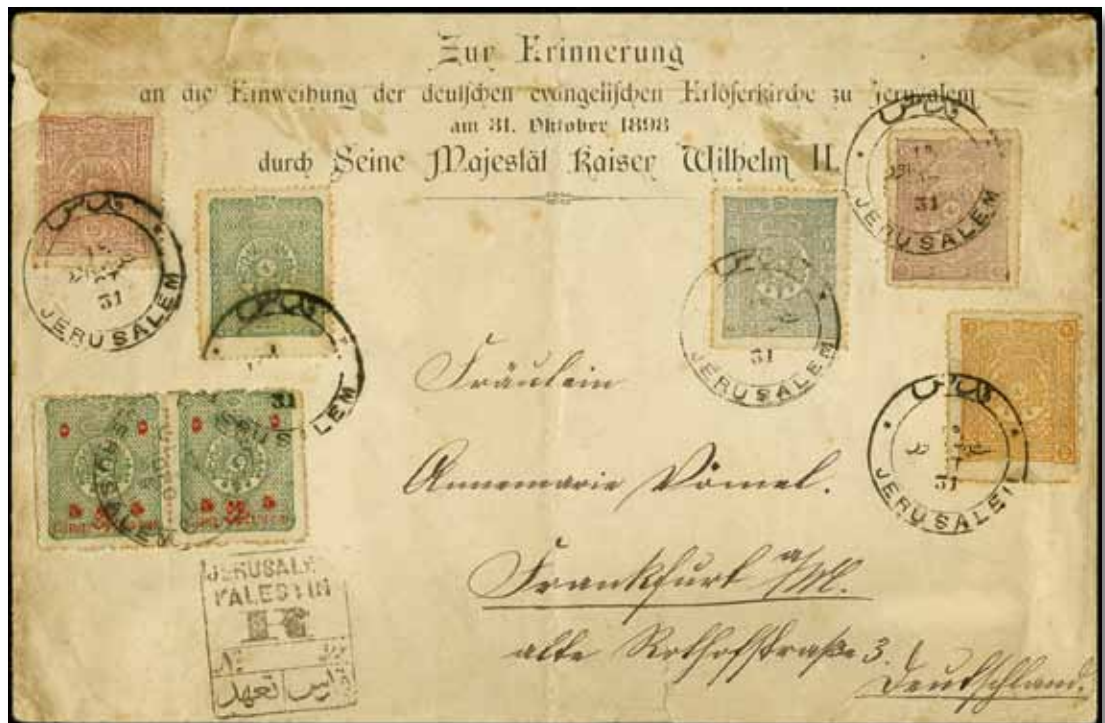 Zur Erinnerung
an die Einweihung der deutschen evangelischen Erlöserkirche zu Jerusalem
am 31. Oktober 1898
durch Seine Majestät Kaiser Wilhelm II.
قدس
31
JERUSALEM
قدس
31
JERUSALEM
قدس
LEM
31
JERUSALEM
قدس
31
JERUSALEM
31
5 5
5 5
5 5
5 5
JERUSALEM
Fräulein
Annemarie Vömel.
Frankfurt a/M.
alte Rothofstraße 3.
Deutschland.
JERUSALE
PALESTIN
R
No
تعهد